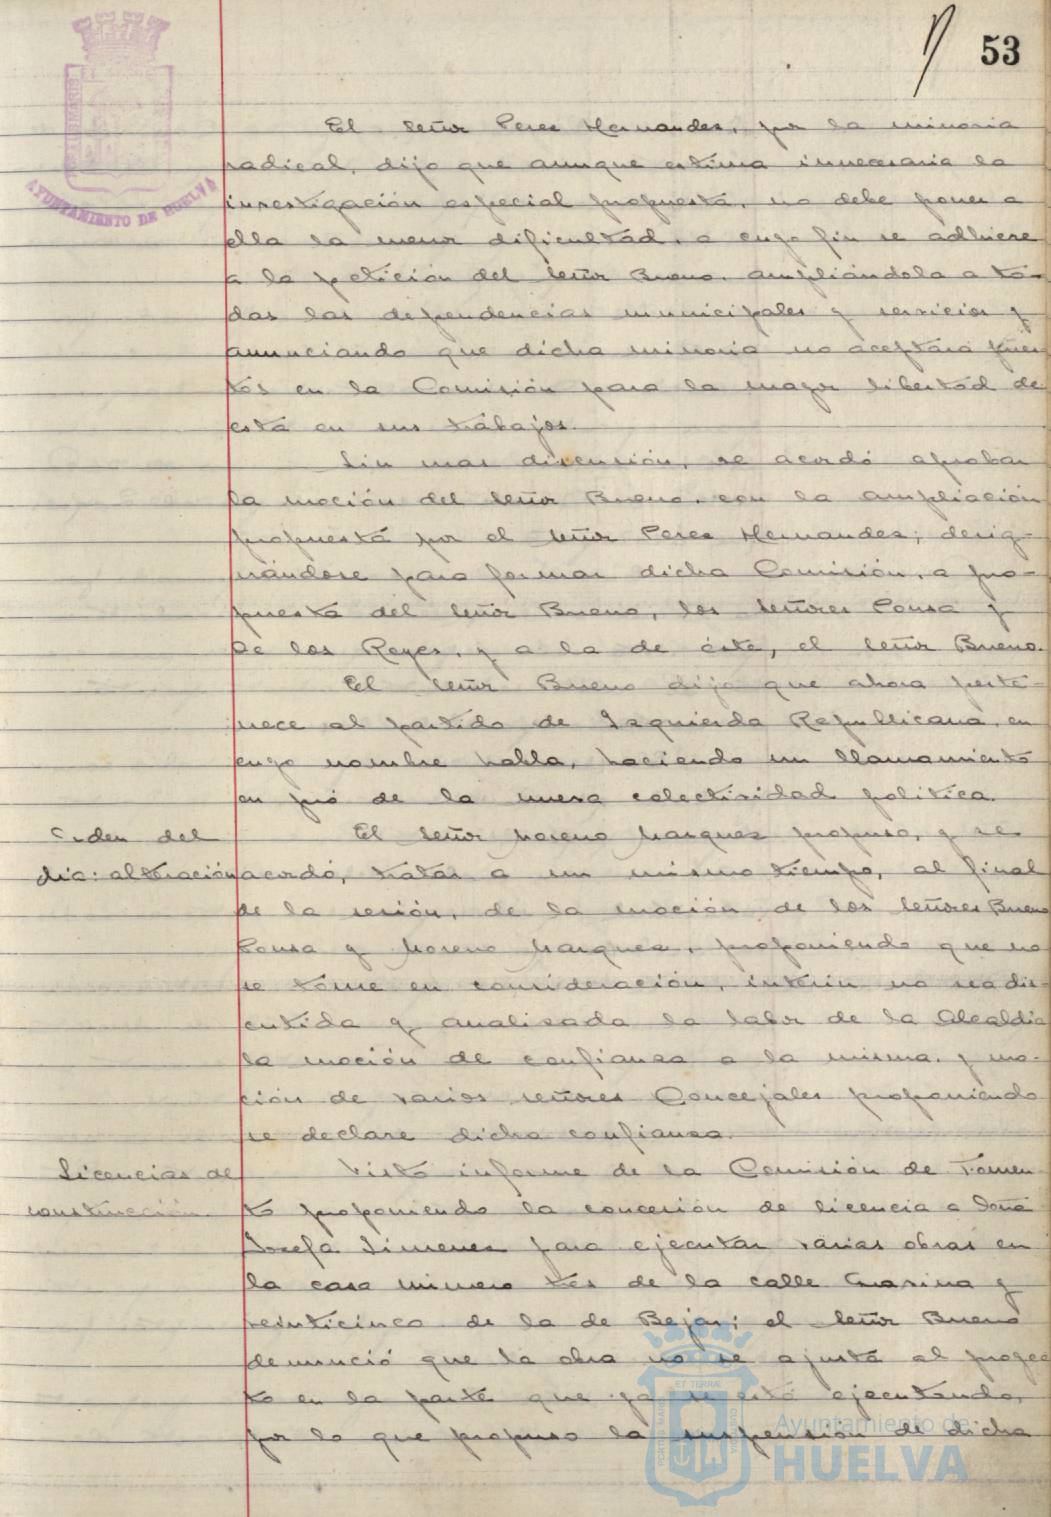 53
AYUNTAMIENTO DE HUELVA
El señor Perez Hernandez, por la minoria
radical, dijo que aunque estima innecesaria la
investigación especial propuesta, no debe poner a
ella la menor dificultad, a cuyo fin se adhiere
a la petición del señor Bueno, ampliándola a to-
das las dependencias municipales y servicios y
anunciando que dicha minoria no aceptará pues-
tos en la Comisión para la mayor libertad de
esta en sus trabajos.
Sin mas discusión, se acordó aprobar
la moción del señor Bueno, con la ampliación
propuesta por el señor Perez Hernandez; desig-
nándose para formar dicha Comisión, a pro-
puesta del señor Bueno, los señores Ponsa y
De los Reyes, y a la de éste, el señor Bueno.
El señor Bueno dijo que ahora perte-
nece al partido de Izquierda Republicana, en
cuyo nombre habla, haciendo un llamamiento
en pró de la nueva colectividad politica.
Orden del
dia: alteración
El señor Moreno Marquez propuso, y se
acordó, tratar a un mismo tiempo, al final
de la sesión, de la moción de los señores Bueno
Ponsa y Moreno Marquez, proponiendo que no
se tome en consideración, interin no sea dis-
cutida y analizada la labor de la Alcaldia
la moción de confianza a la misma, y mo-
ción de varios señores Concejales proponiendo
se declare dicha confianza.
Licencias de
construcción.
Visto informe de la Comisión de Fomen
to proponiendo la concesión de licencia a Doña
Josefa Jimenez para ejecutar varias obras en
la casa número tres de la calle Marina y
veinticinco de la de Bejar; el señor Bueno
denunció que la obra no se ajusta al proyec
to en la parte que ya se está ejecutando,
por lo que propuso la suspensión de dicha
Ayuntamiento de
HUELVA